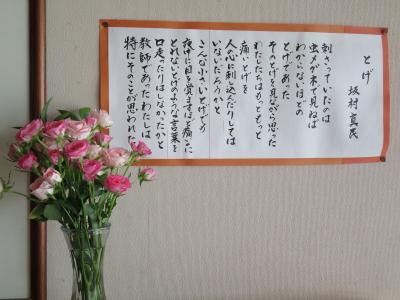 とげ
坂村真民
刺さっていたのは
虫メガネで見ねば
わからないほどの
とげであった
そのとげを見ながら思った
わたしたちはもっともっと
痛いとげを
人の心に刺し込んだりしては
いないだろうかと
こんな小さいとげでも
夜中に目を覚ますほど痛いに
とれないとげのような言葉を
口走ったりはしなかったかと
教師であったわたしは
特にそのことが思われた